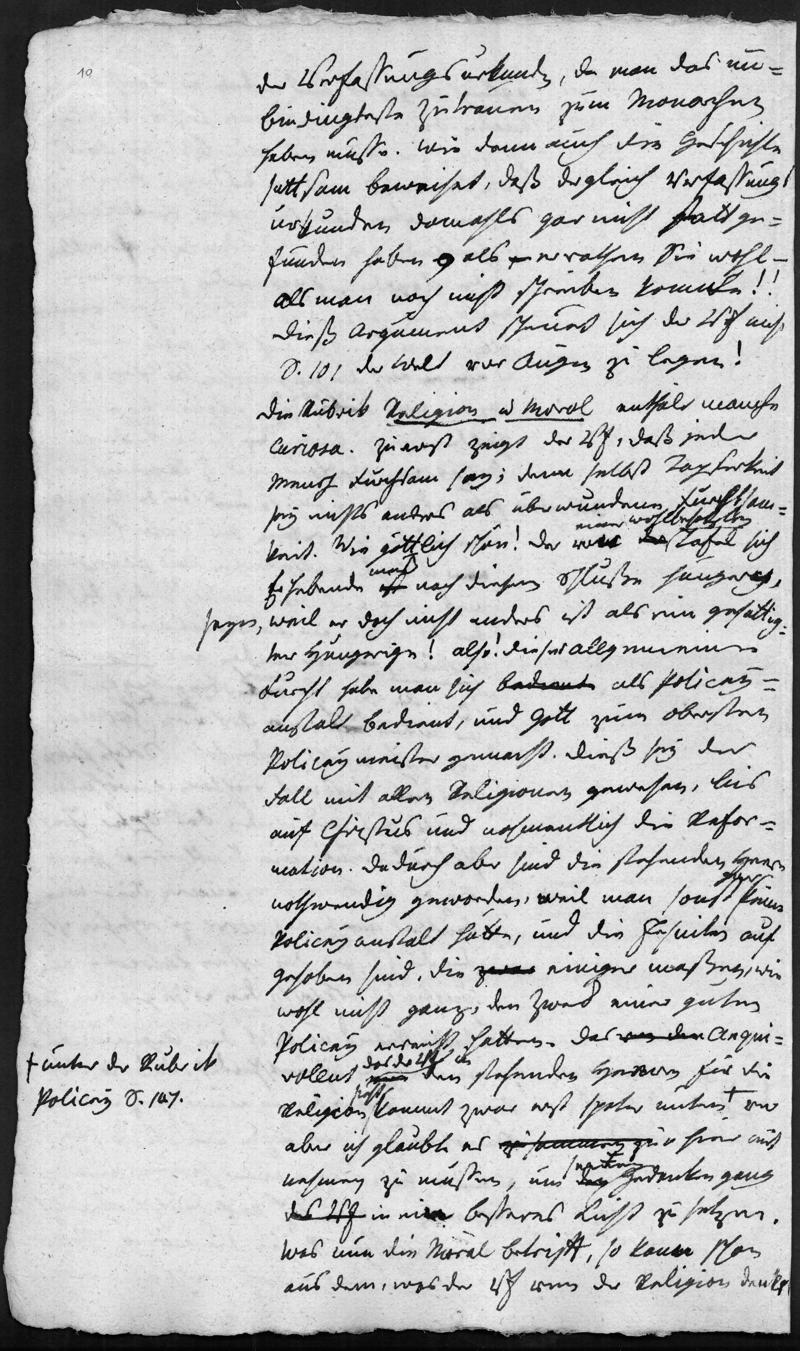 10
der Verfassungsurkunden, da man das un=
bindingteste Zutrauen zum Monarchen
haben müsse. Wie dann auch die Geschichte
sattsam beweiset, daß dergleich Verfassungs
urkunden domahls gar nicht statt ge=
funden haben, als – errathen Sie wohl –
als man noch nicht schreiben konnte!!
Dieß Argument scheuet sich der Vf nicht
S. 101 der Welt vor Augen zu legen!
Die Rubrik Religion u Moral enthält manche
Curiosa. Zuerst zeigt der Vf, daß jeder
Mensch furchtsam sey; denn selbst Tapferkeit
sey nichts anders als überwundene Furchtsam=
einer wohlbesetzten
keit. Wie göttlich schön! Der von Tafel sich
muß
Erhebende nach diesem Schluße hungrig
seyn, weil er doch nicht anders ist als ein gesättig=
ter Hungeriger! Also! dieser allgemeinen
Furcht habe man sich bedient als Policey=
anstalt bedient, und Gott zum obersten
Policeymeister gemacht. Dieß sey der
Fall mit allen Religionen gewesen, bis
auf Christus und nahmentlich die Refor=
mation. Dadurch aber sind die stehenden Heere
nothwendig geworden, weil man sonst keine
Policeyanstalt hätte, und die Jesuiten auf
gehoben sind, die zwar einiger maßen, wie
wohl nicht ganz, den Zweck einer guten
Policey erreicht hatten. Das von den Aequi=
das der Vf in
vollent den stehenden Heeren für die
Religion kommt zwar erst später unten + vor
+ unter der Rubrik
Policey S. 147.
aber ich glaubte es hier mit
nehmen zu müssen, um den Gedankengang
des Vf in ein besseres Licht zu setzen.
Was nun die Moral betrifft, so kann schon
aus dem, was der Vf von der Religion denkt,